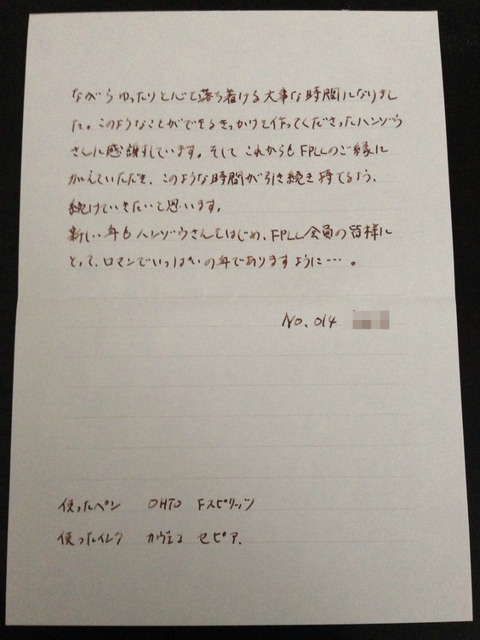 ながらゆったりと心を落ち着ける大事な時間になりまし
た。このようなことができるきっかけを作ってくださったハンゾウ
さんに感謝しています。そして これからもFPLLのご縁に
加えていただき、このような時間が引き続き持てるよう、
続けていきたいと思います。
新しい年もハンゾウさんをはじめ、FPLL会員の皆様に
とって、ロマンでいっぱいの年でありますように…。
No.014
使ったペン OHTO Fスピリッツ
使ったインク カヴェコ セピア.